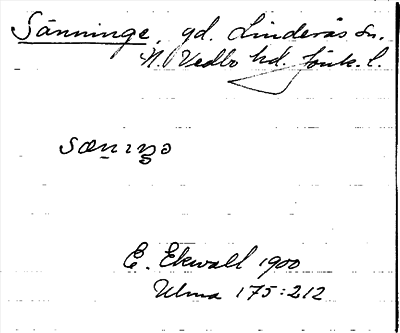 Sänninge, gd. Linderås sn.
N. Vedbo hd. Jönk. l.
sænıŋə
E. Ekwall 1900
Ulma 175:212